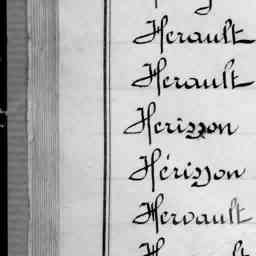 Herault
Herault
Herisson
Hérisson
Hervault